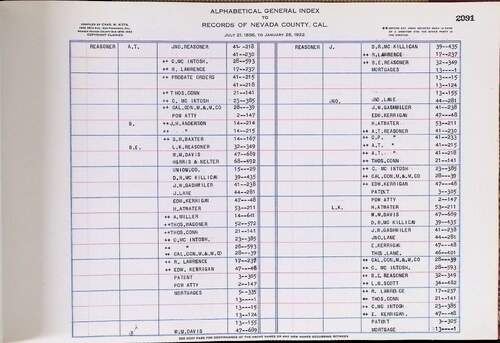 ALPHABETICAL GENERAL INDEX
TO
RECORDS OF NEVADA COUNTY, CAL.
JULY 21, 1856, TO JANUARY 28, 1922
COMPILED BY CHAS. W. KITTS,
COPYRIGHT CLAIMED
2091
REASONER A.T. JNO.REASONER 41--218
41--230
++ C. MC INTOSH, 28--593
++ R. LAWRENCE 17--237
++ PROBATE ORDERS 41--215
41--218
++ THOS.CONN 21--141
++ C. MC INTOSH 23--385
++ CAL.CON.M.&.M.CO 28--39
POW ATTY 2--147
B. ++ J.H.ANDERSON 14--214
++ " 14--215
++ S.H.BAXTER 14--167
B.E. L.K.REASONER 32--349
W.M.DAVIS 47--689
HARRIS & NELTER 68--492
UNION.CO. 15--29
D.R.MC KILLIGAN 39--435
J.N.GASHWILER 41--238
J.LANE 44--281
EDW.KERRIGAN 47--48
H.ATWATER 53--211
++ A.MILLER 14--641
++THOS.HAGONER 52--572
++THOS.CONN 21--141
++ C.MC INTOSH, 23--385
++ " 28--593
++ CAL.CON.M.&.M.CO 28--39
++ R. LAWRENCE 17--238
++ EDW. KERRIGAN 47--48
PATENT 3--305
POW ATTY 2--147
MORTGAGES 5--335
13---1
13--15
13--124
13--155
W.M.DAVIS 47--689
REASONER J. D.R.MC KILLIGAN 39--435
++ R.LAWRENCE 17--237
++ B.E.REASONER 32--349
MORTGAGES 13---1
13--15
13--124
13--155
JNO. JNO.LANE 44--281
J.N.GASHWILER 41--238
EDW.KERRIGAN 47--48
H.ATWATER 53--211
++ A.T.REASONER 41--230
++ C.P. " 41--233
++ A.T. " 41--215
++ A.T. " 41--218
++ THOS.CONN 21--141
++ C. MC INTOSH 23--385
++ CAL.CON.M.&.M.CO 28--39
++ EDW.KERRIGAN 47--48
PATENT 3--305
POW ATTY 2--147
L.K. H.ATWATER 53--211
W.M.DAVIS 47--689
D.R.MC KILLIGAN 39--435
J.N.GASHWILER 41--238
JNO.LANE 44--281
E.KERRIGAN 47--48
THOS.LANE, 46--401
++ CAL.CON.M.&.M.CO 28--39
++ C. MC INTOSH, 28--593
++ B.E. REASONER 32--349
++ L.SCOTT 34--682
++ R. LAWRENCE 17--237
++ THOS.CONN 21--141
++ C. MC INTOSH 23--385
++ E. KERRIGAN, 47--48
PATENT 3--305
MORTGAGE 13---1
SEE NEXT PAGE FOR CONTINUANCE OF THE ABOVE NAMES OR ANY NEW NAMES OCCURRING BETWEEN